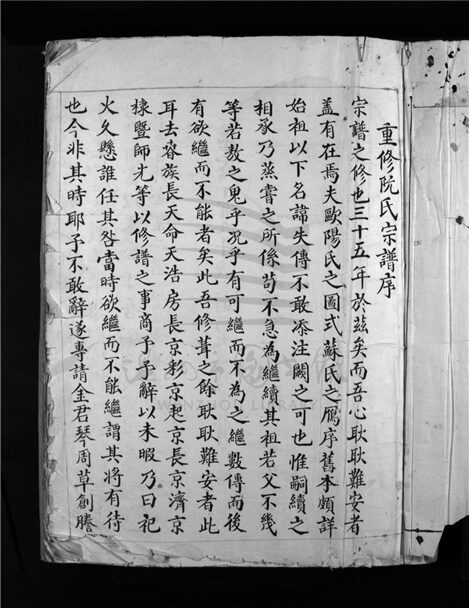 重修阮氏宗譜序
宗譜之修也三十五年於茲矣而吾心耿耿難安者
蓋有在焉夫歐陽氏之圖式蘇氏之鴈序舊本頗詳
始祖以下名諱失傳不敢添注闕之可也惟嗣續之
相承乃蒸嘗之所係苟不急為繼續其祖若父不幾
等若敖之鬼乎况乎有可繼而不為之繼數傳而後
有欲繼而不能者矣此吾修葺之餘耿耿難安者此
耳去春族長天命天浩房長京彩京起京長京濟京
棣暨師光等以修譜之事商于予辭以未暇乃曰祀
火久懸誰任其咎當時欲繼而不能繼謂其將有待
也今非其時耶予不敢辭遂專請金君琴周草創謄